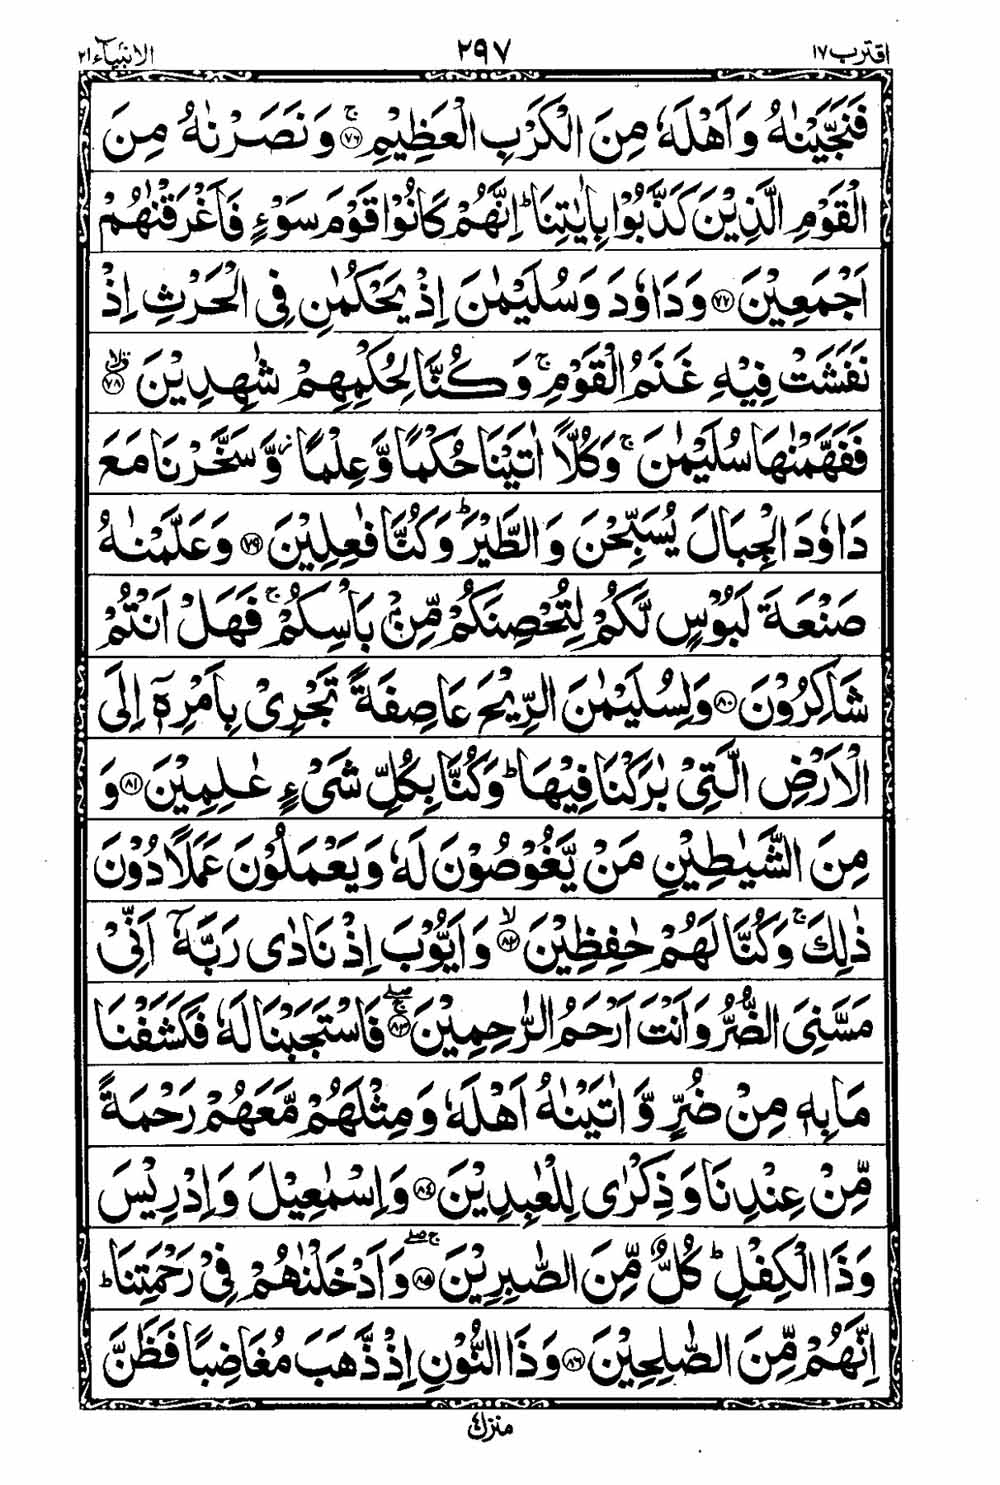 اقترب ١٧ ٢٩٧ الانبيآء ٢١
فَنَجَّيْنٰهُ وَاَهْلَهٗ مِنَ الْكَرْبِ الْعَظِيْمِ ۚ﴿٧٦﴾ وَنَصَرْنٰهُ مِنَ
الْقَوْمِ الَّذِيْنَ كَذَّبُوْا بِاٰيٰتِنَا ؕ اِنَّهُمْ كَانُوْا قَوْمَ سَوْءٍ فَاَغْرَقْنٰهُمْ
اَجْمَعِيْنَ ﴿٧٧﴾ وَدَاوٗدَ وَسُلَيْمٰنَ اِذْ يَحْكُمٰنِ فِي الْحَرْثِ اِذْ
نَفَشَتْ فِيْهِ غَنَمُ الْقَوْمِ ۚ وَكُنَّا لِحُكْمِهِمْ شٰهِدِيْنَ ۙۗ﴿٧٨﴾
فَفَهَّمْنٰهَا سُلَيْمٰنَ ۚ وَكُلًّا اٰتَيْنَا حُكْمًا وَّعِلْمًا ؗ وَّسَخَّرْنَا مَعَ
دَاوٗدَ الْجِبَالَ يُسَبِّحْنَ وَالطَّيْرَ ؕ وَكُنَّا فٰعِلِيْنَ ﴿٧٩﴾ وَعَلَّمْنٰهُ
صَنْعَةَ لَبُوْسٍ لَّكُمْ لِتُحْصِنَكُمْ مِّنْۢ بَاْسِكُمْ ۚ فَهَلْ اَنْتُمْ
شَاكِرُوْنَ ﴿٨٠﴾ وَلِسُلَيْمٰنَ الرِّيْحَ عَاصِفَةً تَجْرِيْ بِاَمْرِهٖۤ اِلَى
الْاَرْضِ الَّتِيْ بٰرَكْنَا فِيْهَا ؕ وَكُنَّا بِكُلِّ شَيْءٍ عٰلِمِيْنَ ﴿٨١﴾ وَ
مِنَ الشَّيٰطِيْنِ مَنْ يَّغُوْصُوْنَ لَهٗ وَيَعْمَلُوْنَ عَمَلًا دُوْنَ
ذٰلِكَ ۚ وَكُنَّا لَهُمْ حٰفِظِيْنَ ۙ﴿٨٢﴾ وَاَيُّوْبَ اِذْ نَادٰى رَبَّهٗۤ اَنِّيْ
مَسَّنِيَ الضُّرُّ وَاَنْتَ اَرْحَمُ الرّٰحِمِيْنَ ۚۖ﴿٨٣﴾ فَاسْتَجَبْنَا لَهٗ فَكَشَفْنَا
مَا بِهٖ مِنْ ضُرٍّ وَّاٰتَيْنٰهُ اَهْلَهٗ وَمِثْلَهُمْ مَّعَهُمْ رَحْمَةً
مِّنْ عِنْدِنَا وَذِكْرٰى لِلْعٰبِدِيْنَ ﴿٨٤﴾ وَاِسْمٰعِيْلَ وَاِدْرِيْسَ
وَذَا الْكِفْلِ ؕ كُلٌّ مِّنَ الصّٰبِرِيْنَ ۚۖ﴿٨٥﴾ وَاَدْخَلْنٰهُمْ فِيْ رَحْمَتِنَا ؕ
اِنَّهُمْ مِّنَ الصّٰلِحِيْنَ ﴿٨٦﴾ وَذَا النُّوْنِ اِذْ ذَّهَبَ مُغَاضِبًا فَظَنَّ
منزل ٤